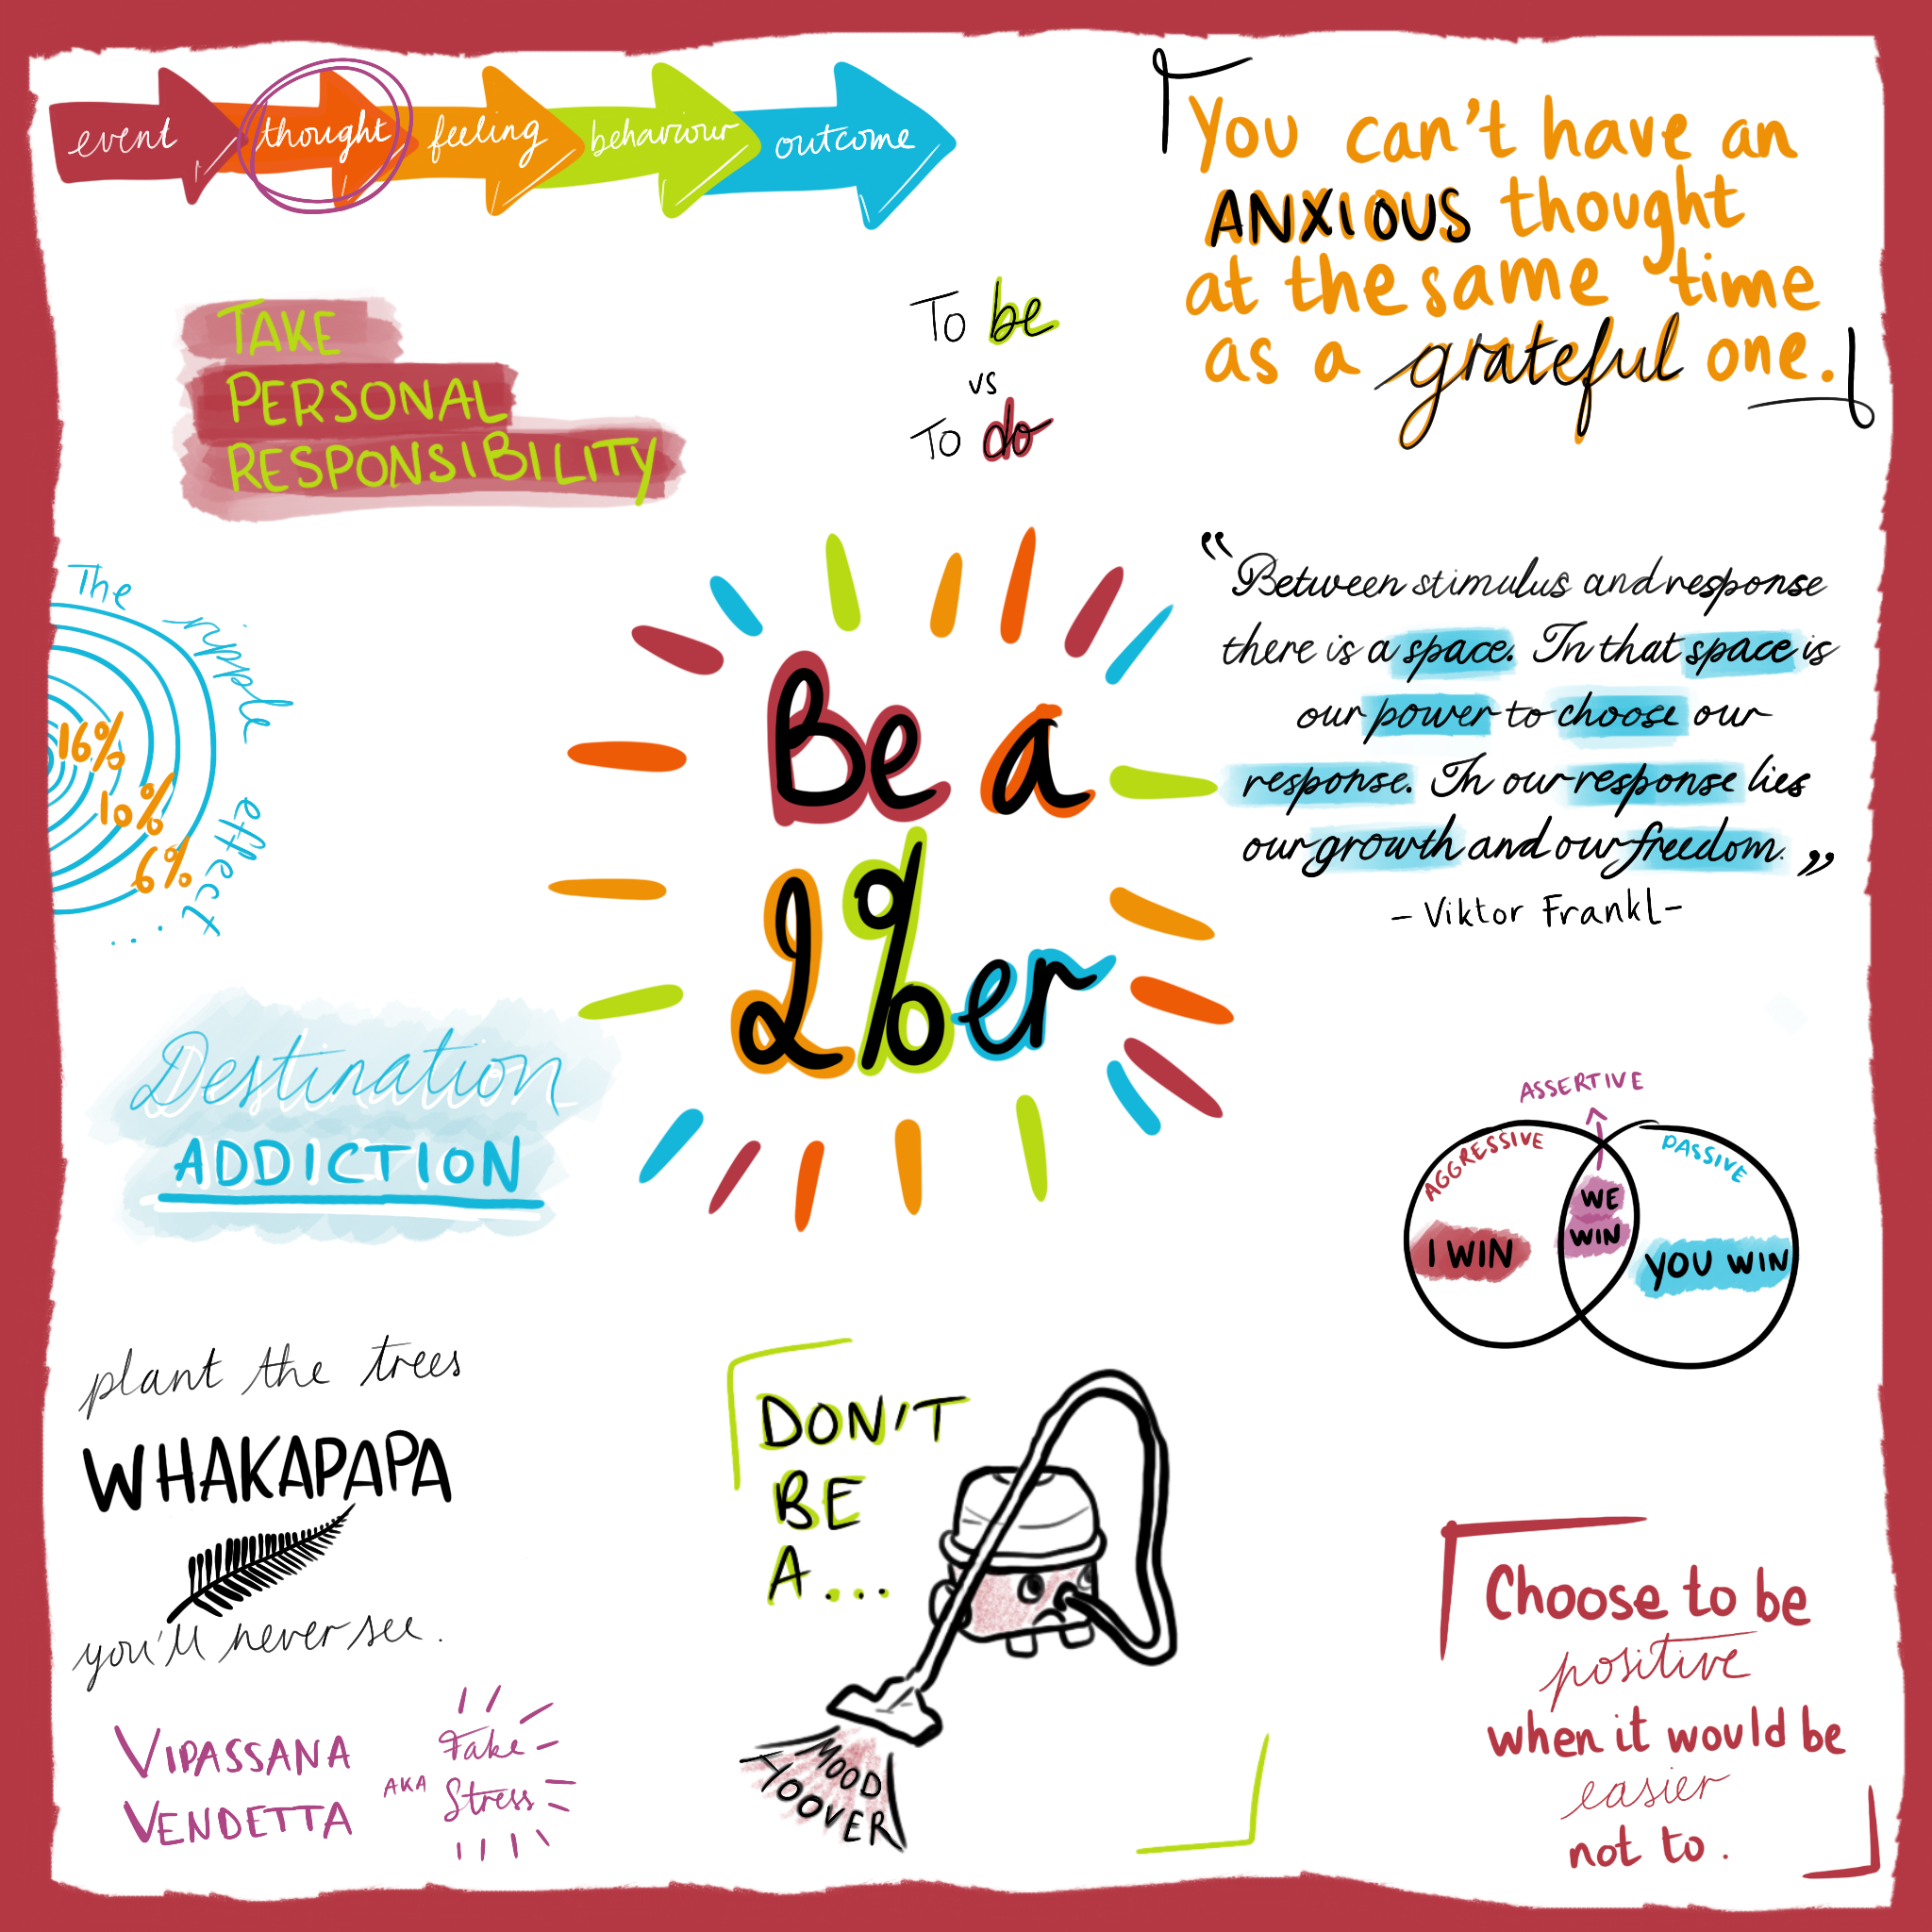 event thought feeling behaviour outcome
You can't have an
ANXIOUS thought
at the same time
as a grateful one.
TAKE
PERSONAL
RESPONSIBILITY
To be
vs
To do
The ripple effect...
16%
10%
6%
Be a
2%er
“Between stimulus and response
there is a space. In that space is
our power to choose our
response. In our response lies
our growth and our freedom.”
- Viktor Frankl -
Destination
ADDICTION
ASSERTIVE
AGGRESSIVE
PASSIVE
WE
WIN
I WIN
YOU WIN
plant the trees
WHAKAPAPA
you'll never see.
DON'T
BE
A...
MOOD
HOOVER
VIPASSANA
VENDETTA
AKA
Fake
Stress
Choose to be
positive
when it would be
easier
not to.